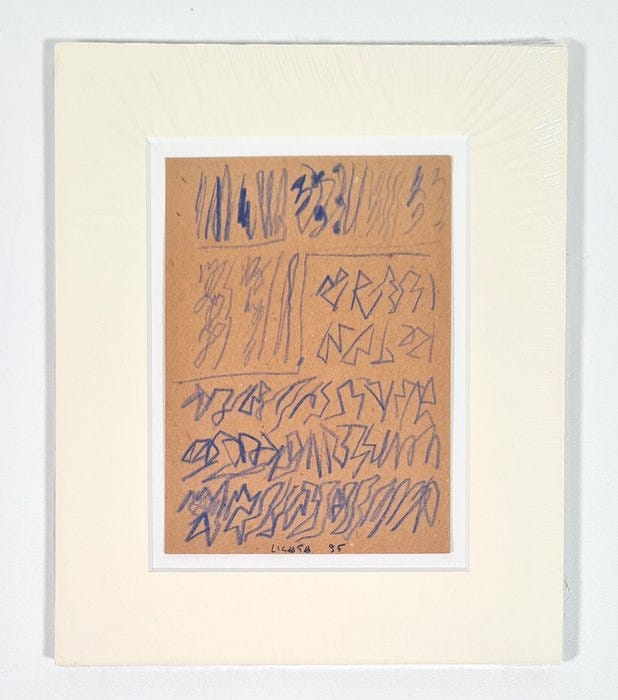 LICATA 95